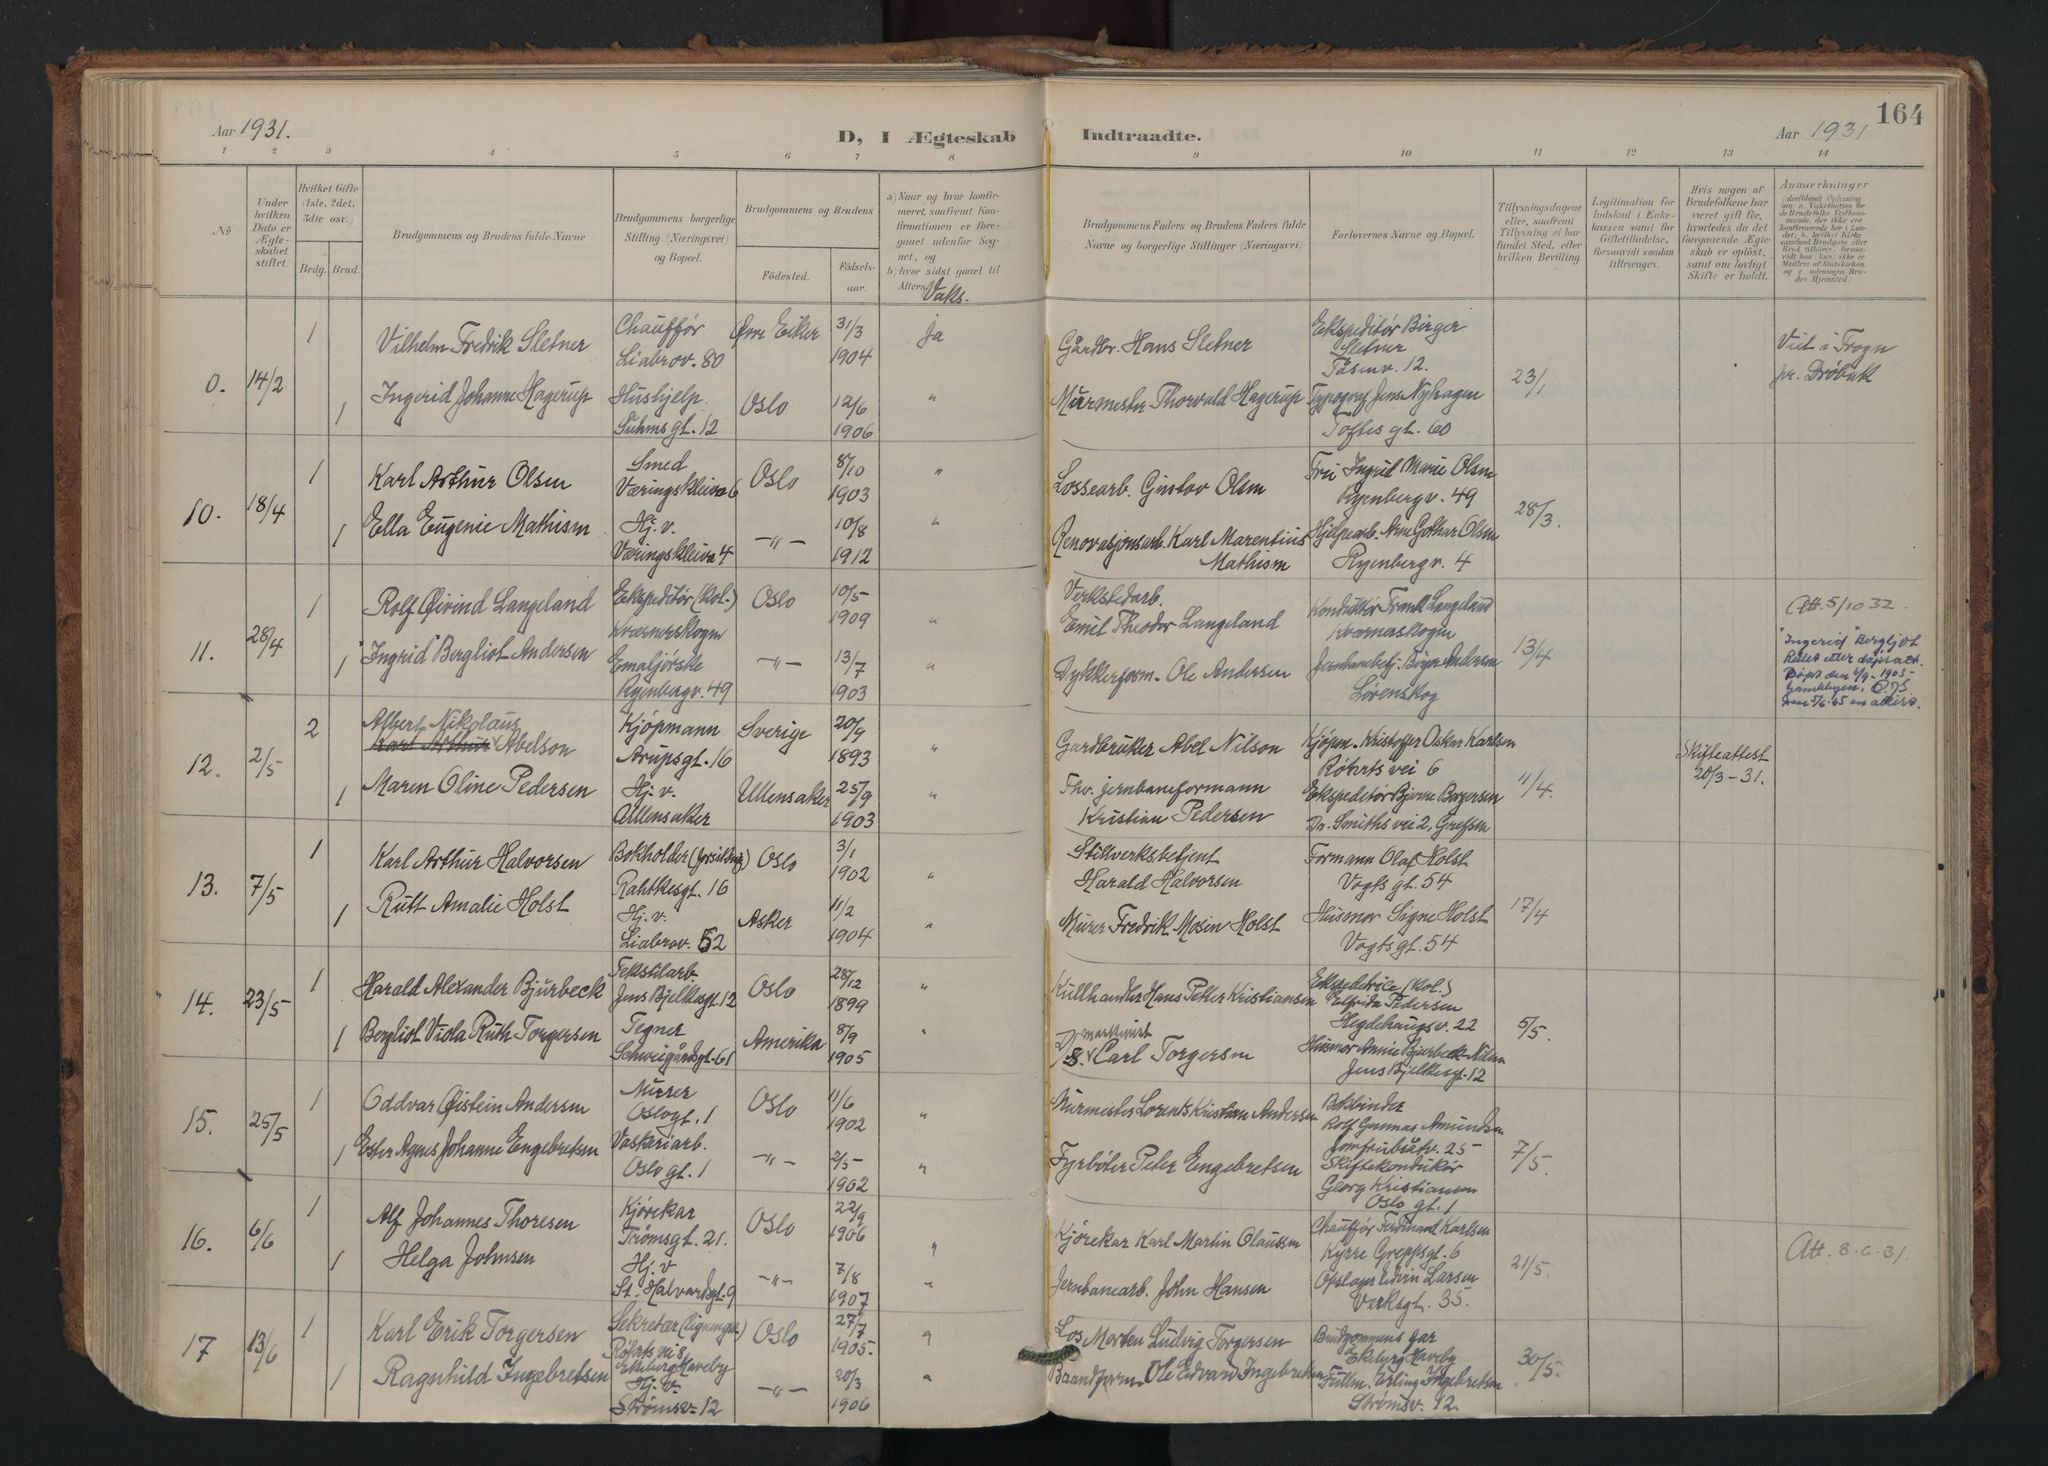 164
Aar 1931.
D, I Ægteskab
Indtraadte.
Aar 1931
1 2 3 4 5 6 7 8 9 10 11 12 13 14
No
Under hvilken Dato er Ægteskabet stiftet.
Hvilket Gifte (1ste, 2det, 3die osv.)
Brdg. Brud.
Brudgommens og Brudens fulde Navne
Brudgommens borgerlige Stilling (Næringsvei) og Bopæl.
Brudgommens og Brudens
Fødested.
Fødselsaar.
a) Naar og hvor konfirmeret, saafremt Konfirmationen er foregaaet udenfor Sognet, og
b) hvor sidst gaaet til Alters.
Vaks.
Brudgommens Faders og Brudens Faders fulde Navne og borgerlige Stillinger (Næringsvei).
Forlovernes Navne og Bopæl.
Tillysningsdagene eller, saafremt Tillysning ei har fundet Sted, efter hvilken Bevilling.
Legitimation for Indskud i Enkekassen samt for Giftetilladelse, forsaavidt saadan tiltrænges.
Hvis nogen af Brudefolkene har været gift før, hvorledes da det foregaaende Ægteskab er opløst, samt om lovligt Skifte er holdt.
Anmerkninger
0. 14/2
1 Vilhelm Fredrik Sletner
Chauffør
Liabrov. 80
Øvre Eiker
31/3
1904
Ja
Gårdbr. Hans Sletner
Ekspeditør Birger
Sletner
Tåsenv. 12.
Viet i Frogn
pr. Drøbak
1 Ingerid Johanne Hagerup
Hushjelp.
Suhms gt. 12
Oslo
12/6
1906
"
Murmester Thorvald Hagerup
Typograf Jens Nyhagen
Toftes gt. 60
23/1
10. 18/4
1 Karl Arthur Olsen
Smed
Væringskleiva 6
Oslo
8/10
1903
"
Lossearb. Gustav Olsen
Fru Ingrid Marie Olsen
Ryenbergv. 49
28/3.
1 Ella Eugenie Mathisen
Hj. v.
Væringskleiva 4
—"—
10/8
1912
"
Renovasjonsarb. Karl Marentius
Mathisen
Hjelpearb. Arne Gothar Olsen
Ryenbergv. 4
11. 28/4
1 Rolf Øivind Langeland
Ekspeditør (kol.)
Kværnerskogen
Oslo
10/5
1909
"
Verkstedarb.
Emil Theodor Langeland
Konduktør Frank Langeland
Kværnaskogn
13/4
Att. 5/10 32.
1 "Ingrid" Bergliot Andersen
Emaljørske
Ryenbergv. 49
—"—
13/7
1903
"
Dykkerform. Ole Andersen
Andersen
Lørenskog
"Ingerid" Bergljot
Rettet etter dåpsatt.
12. 2/5
2 Albert Nikolaus
Karl Arthur Abelson
Kjøpmann
Arupsgt. 16
Sverige
20/9
1893
"
Gardbruker Abel Nilson
Kjøpm. Kristoffer Oskar Karlsen
Røhrts vei 6
11/4.
Skifteattest
20/3-31.
1 Maren Oline Pedersen
Hj. v.
Ullensaker
Ullensaker
25/9
1903
"
Fhv. jernbaneformann
Kristian Pedersen
Ekspeditør Bjarne Borgersen
Dr. Smiths vei 2, Grefsen
13. 7/5
1 Karl Arthur Halvorsen
Bokholder
Rahtkesgt. 16
Oslo
3/1
1902
"
Stillverksbetjent
Harald Halvorsen
Formann Olaf Holst
Vogts gt. 54
17/4
1 Ruth Amalie Holst
Hj. v.
Liabrov. 52
Asker
11/2
1904
"
Murer Fredrik Mosin Holst
Husmor Signe Holst
Vogtsgt. 54
14. 23/5
1 Harald Alexander Bjurbeck
Tekstilarb
Jens Bjelkesgt. 12
Oslo
28/12
1899
"
Kullhandler Hans Petter Kristiansen
Ekspeditrice (kol.)
Elfrida Pedersen
Hegdehaugsv. 22
5/5.
1 Bergliot Viola Ruth Torgersen
Tegner
Schweigårdsgt. 61
Amerika
8/9
1905
"
maskinist
Carl Torgersen
Husmor Annie Bjurbeck-Nilsen
Jens Bjelkesgt. 12
15. 25/5
1 Oddvar Øistein Andersen
Murer
Oslogt. 1
Oslo
11/6
1902
"
Murmester Lorents Kristian Andersen
Bokbinder
Rolf Gunnar Amundsen
Jomfrubråtv. 25
7/5.
1 Ester Agnes Johanne Engebretsen
Vaskeriarb.
Oslo gt. 1
—"—
2/5
1902
"
Fyrbøter Peter Engebretsen
Skiftekonduktør
Georg Kristiansen
Oslo gt. 1
16. 6/6
1 Alf Johannes Thoresen
Kjørekar
Tromsgt. 21.
Oslo
22/9
1906
"
Kjørekar Karl Martin Olaussen
Chauffør Ferdinant Karlsen
Kyrre Greppsgt. 6
21/5.
Att. 8-6-31.
1 Helga Johnsen
Hj. v
St. Halvardsgt. 9
—"—
7/8
1907
"
Jernbanearb. John Hansen
Opslager Edvin Larsen
Verksgt. 35.
17 13/6
1 Karl Erik Torgersen
Sekretær
Røhrts vei 8
Ekeberg Haveby
Oslo
27/7
1905.
"
Los Morten Ludvig Torgersen
Brudgommens far
Ekeberg Haveby
30/5.
1 Ragnhild Ingebretsen
Hj. v.
Strømsv. 12
—"—
20/3
1906
"
Baandform. Ole Edvard Ingebretsen
Fullm. Erling Ingebretsen
Strømsv. 12.